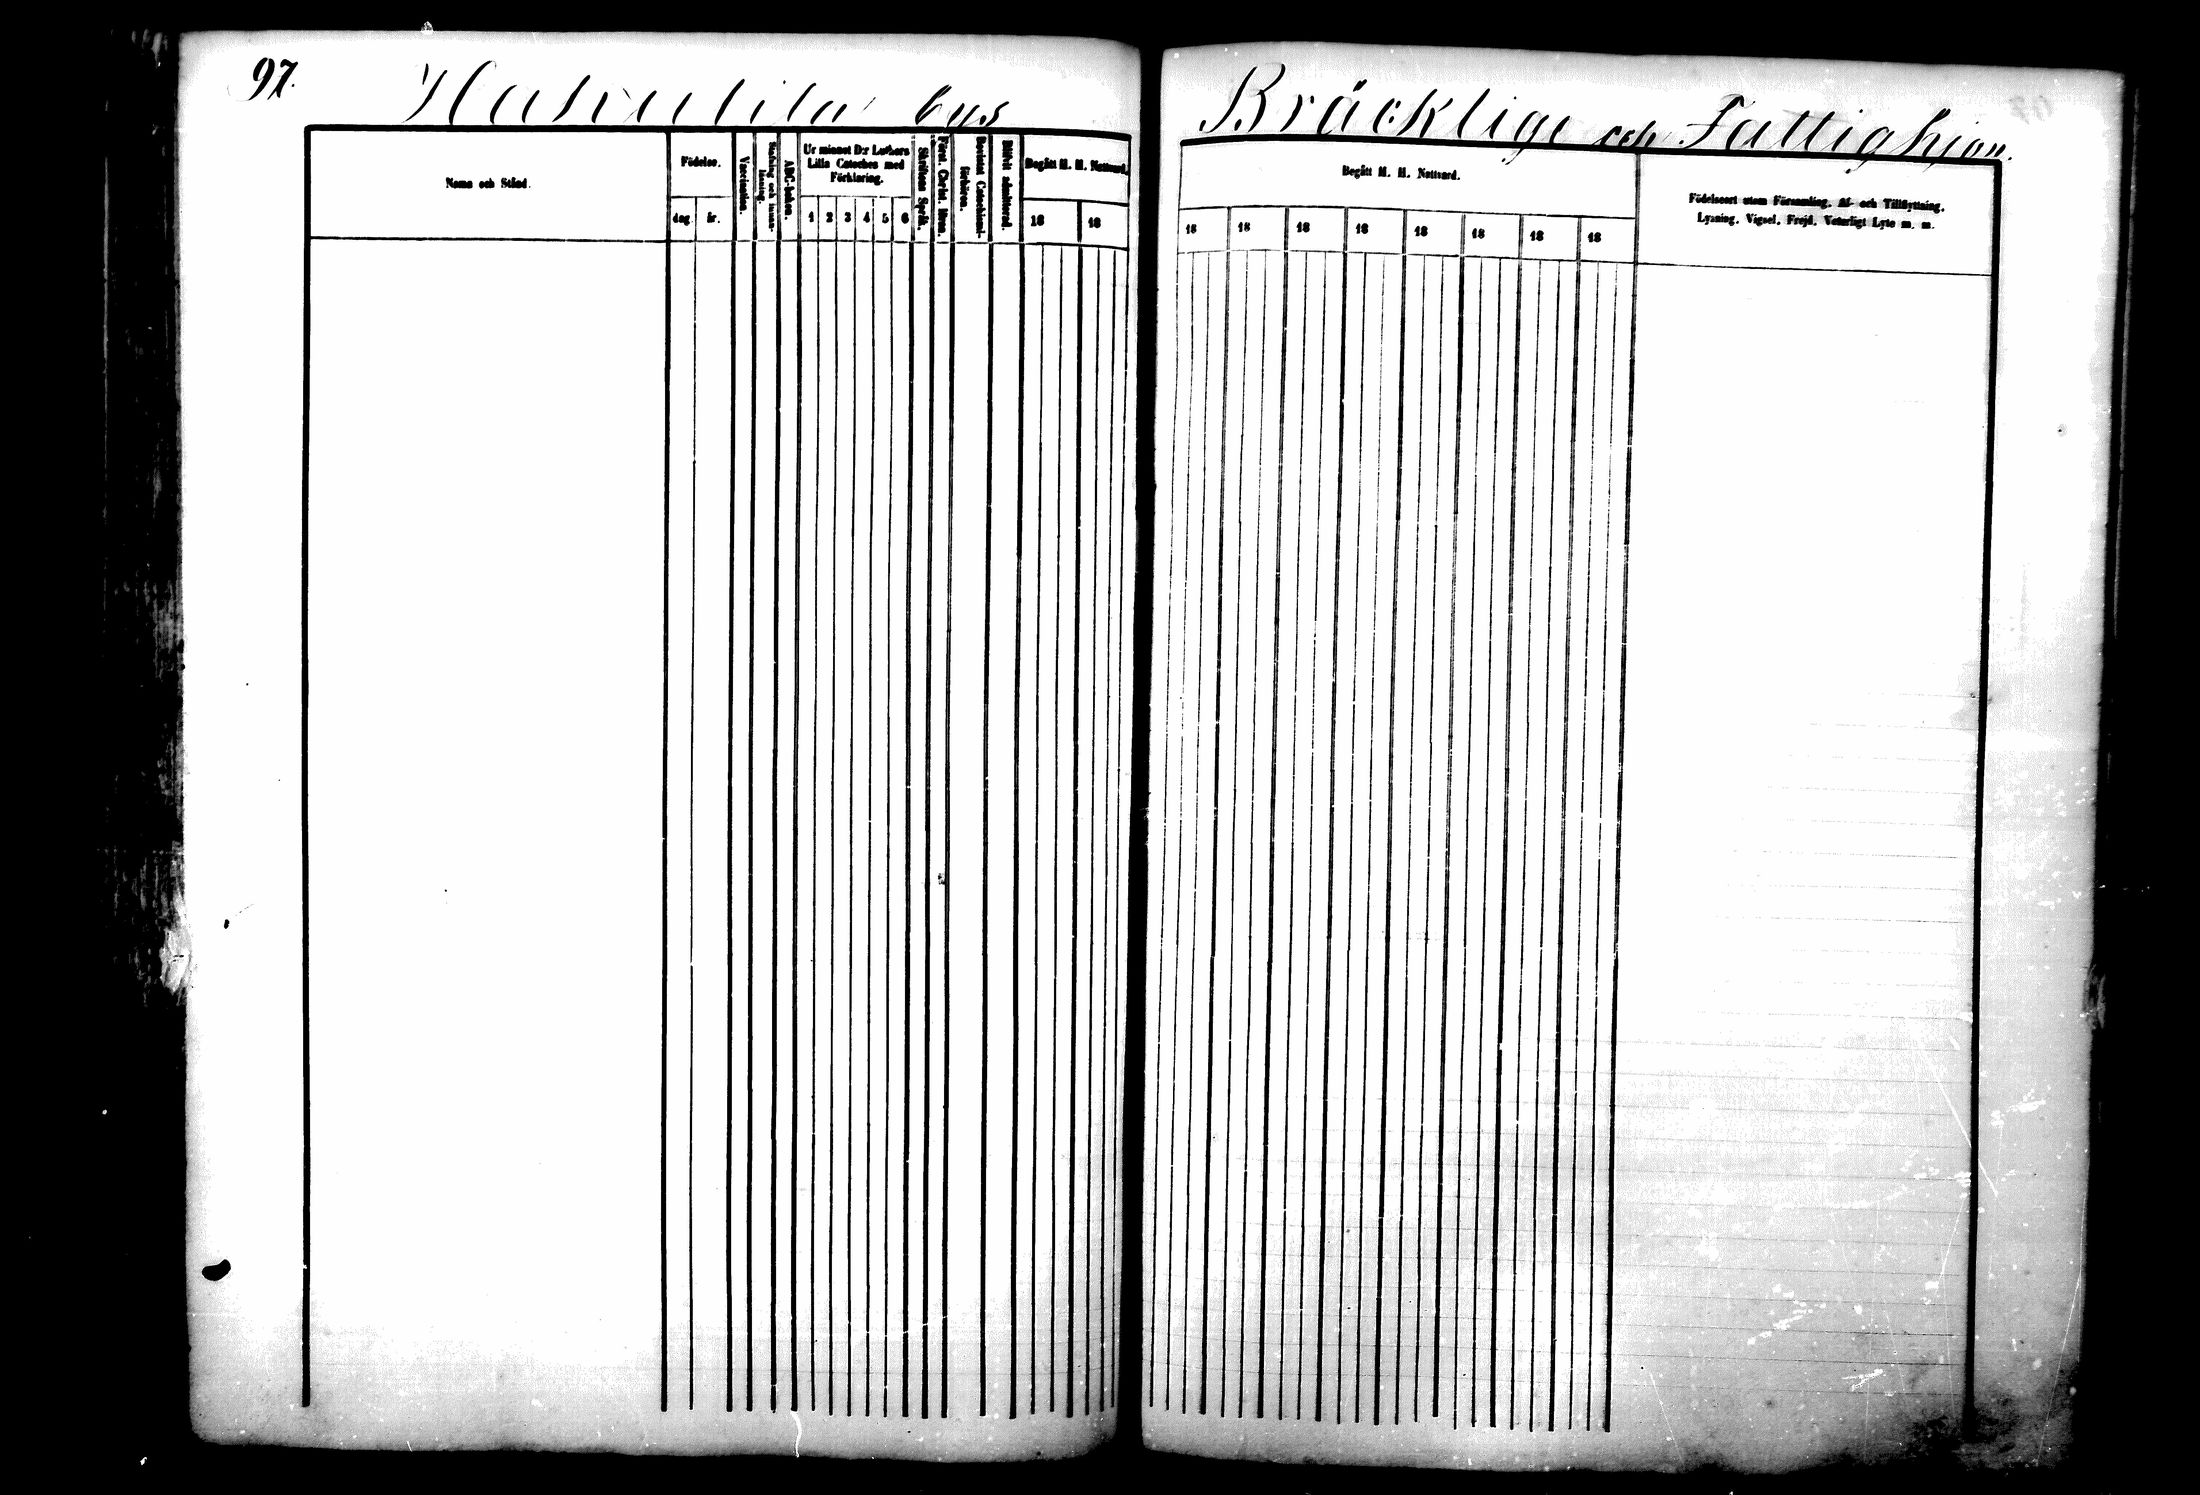 97.
Hahulila bys
Bräcklige och Fattighjon.
Namn och Stånd.
Födelse.
dag.
år.
Vaccination.
Stafning och innan-
läsning.
ABC-boken.
Ur minnet D:r Luthers
Lilla Cateches med
Förklaring.
1 2 3 4 5 6
Skriftens Språk.
Först. Christ. läran.
Bevistat Catechismi-
förhören.
Blifvit admitterad.
Begått H. H. Nattvard.
18 18
Begått H. H. Nattvard.
18 18 18 18 18 18 18 18
Födelseort utom Församling. Af- och Tillflyttning.
Lysning. Vigsel. Frejd. Veterligt Lyte m. m.